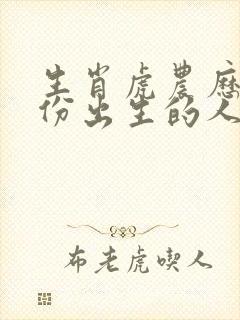 生肖虎農曆
份出生的人
布老虎喫人